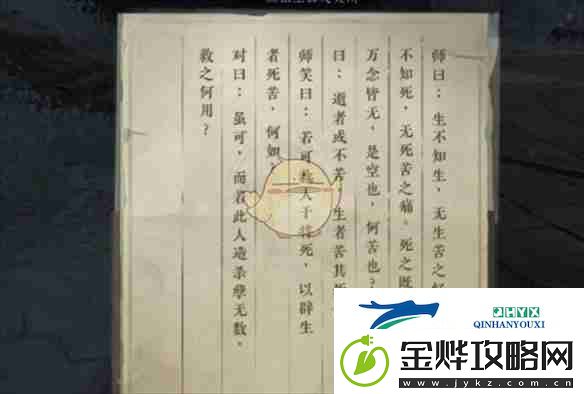 师曰：生不知生，无生苦之
不知死，无死苦之痛。死之既
万念皆无，是空也，何苦也？
曰：逝者或不苦，生者苦其
师笑曰：若可救人于将死，以辟生
者死苦，何如
对曰：虽可，而若此人造杀孽无数，
救之何用？
QHYX
QINHANYOUXI
金烨攻略网
www.jykz.com.cn